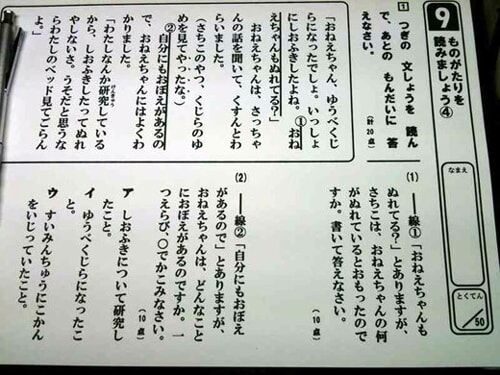 9
ものがたりを
読みましょう④
なまえ
とくてん
/50
1 つぎの 文しょうを 読ん
で、あとの もんだいに 答
えなさい。
(計20点)
「おねえちゃん、ゆうべくじ
らになったでしょ。いっしょ
にしおふきしたよね。①おね
えちゃんもぬれてる?」
おねえちゃんは、さっちゃ
んの話を聞いて、くすんとわ
らいました。
(さちこのやつ、くじらのゆ
めを見てやったな。)
②自分にもおぼえがあるの
で、おねえちゃんにはよくわ
かりました。
「わたしなんか研究している
けんきゅう
から、しおふきしたってぬれ
やしないさ。うそだと思うな
らわたしのベッド見てごらん
よ。」
(1) ――線①「おねえちゃんも
ぬれてる?」とありますが、
さちこは、おねえちゃんの何
がぬれているとおもったので
すか。書いて答えなさい。
(10点)
(2) ――線②「自分にもおぼえ
があるので」とありますが、
おねえちゃんは、どんなこと
におぼえがあるのですか。一
つえらび、○でかこみなさい。
(10点)
ア しおふきについて研究し
たこと。
イ ゆうべくじらになったこ
と。
ウ すいみんちゅうにこかん
をいじっていたこと。